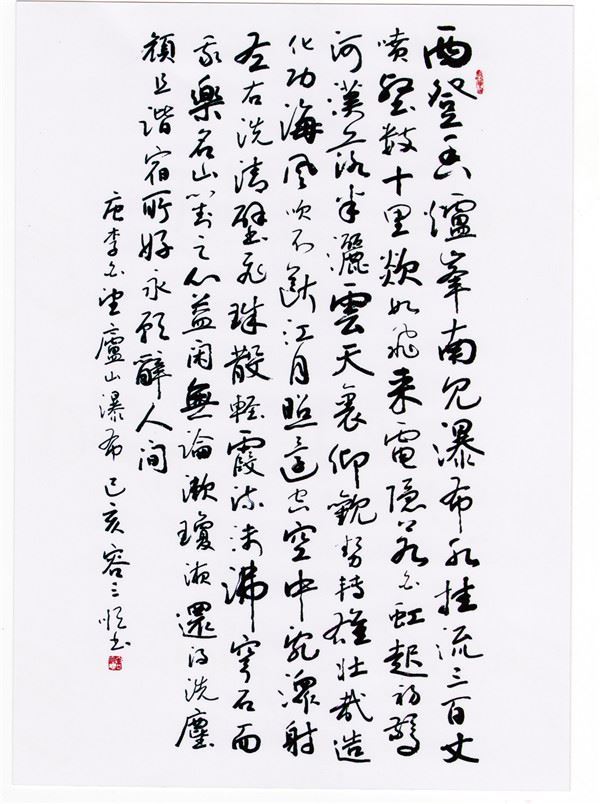 西登香爐峯南見瀑布水挂流三百丈
喷壑数十里欻如飛来電隐若白虹起初驚
河漢落半灑雲天裏仰觀勢轉雄壮哉造
化功海風吹不斷江月照還空空中亂潈射
左右洗清壁飛珠散輕霞流沫沸穹石而
我樂名山對之心益閑無論漱瓊液還得洗塵
顔且諧宿所好永願辭人间
唐李白望廬山瀑布 己亥容三顺书